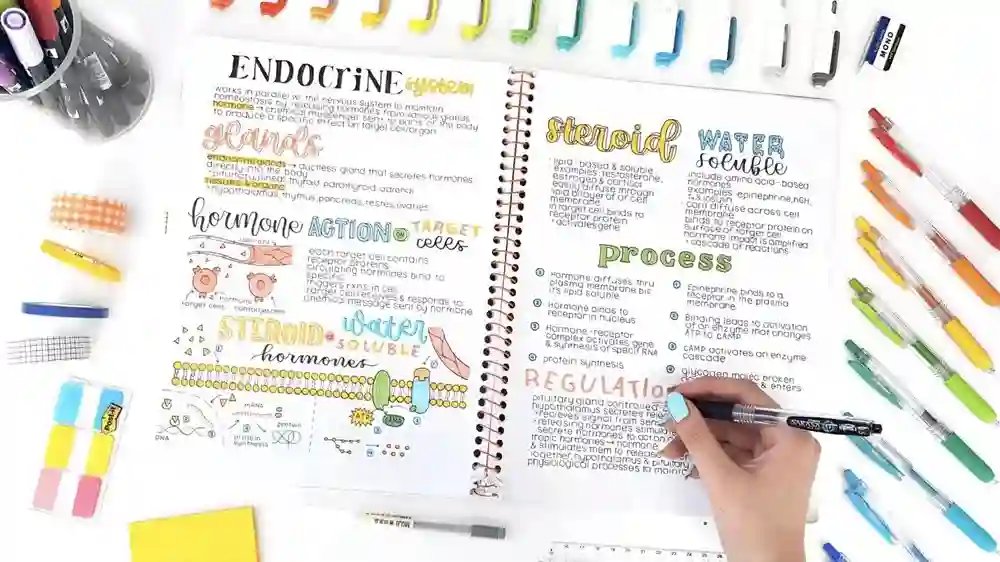 ENDOCRINE system
works in parallel w/ the nervous system to maintain
homeostasis by releasing hormones from various glands
hormone → chemical messenger sent to parts of the body
to produce a specific effect on target cell/organ
glands
endocrine glands → ductless gland that secretes hormones
directly into the body
pituitary, pineal, thyroid, parathyroid, adrenal
tissues & organs
hypothalamus, thymus, pancreas, testes, ovaries
hormone ACTION on TARGET
cells
each target cell contains
receptor proteins
circulating hormones bind to
specific
triggers rxns in cell
target cell receives & responds to
chemical message sent by hormone
target cells
STEROID water
SOLUBLE
hormones
ATP
mRNA
DNA
protein
synthesis
steroid
· lipid-based & soluble
examples: testosterone,
estrogen & cortisol
easily diffuse through
lipid bilayer of cell
membrane
in target cell binds to
receptor protein
· activates gene
WATER
soluble
include amino acid-based
hormones
examples: epinephrine, HGH,
T4 & insulin
cant diffuse across cell
membrane
binds to receptor protein on
surface of target cell
hormone impact is amplified
· cascade of reactions
process
① Hormone diffuses thru
plasma membrane b/c
it's lipid soluble
② Hormone binds to
receptor in nucleus
③ Hormone-receptor
complex activates gene
& synthesis of specif RNA
④ protein synthesis
① Epinephrine binds to a
receptor in the plasma
membrane
② Binding leads to activation
of an enzyme that changes
ATP to cAMP
③ cAMP activates an enzyme
cascade
④ glycogen molec broken
& enters
REGULATIO
pituitary gland controlled
hypothalamus secretes
· receives signal from
· releasing hormones
secrete hormones to
tropic hormones → hormone
& stimulates them to release
together, hypothalamus & pituitary
physiological processes to
MONO
Post-it
MUJI